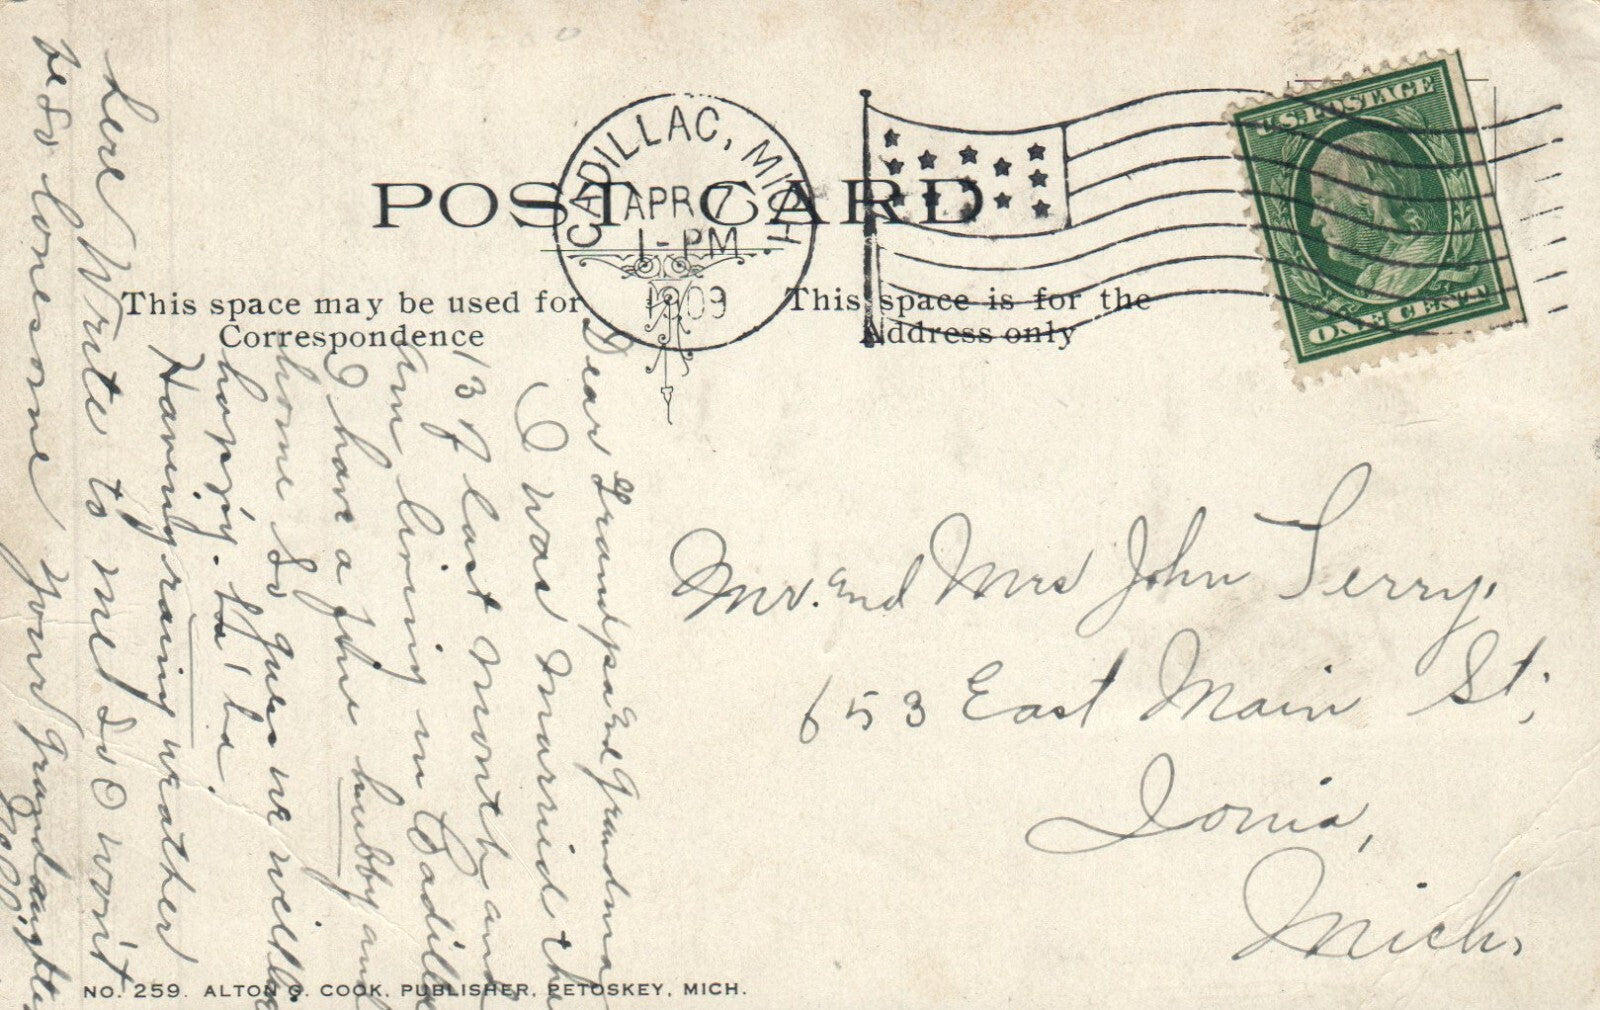 POST CARD
CADILLAC, MICH
APR 7
1-PM
1909
U.S. POSTAGE
ONE CENT
This space may be used for
Correspondence
This space is for the
Address only
Dear Grandpa and Grandma
I was married the
13 of last month and
am living in Cadillac
I have a fine hubby and
home So gues we will be
happy. ha' ha
Having rainy weather
here Write to me So I won't
be so lonesome Your granddaughter
Mr. and Mrs John Terry,
653 East Main St,
Ionia,
Mich,
NO. 259. ALTON G. COOK, PUBLISHER, PETOSKEY, MICH.